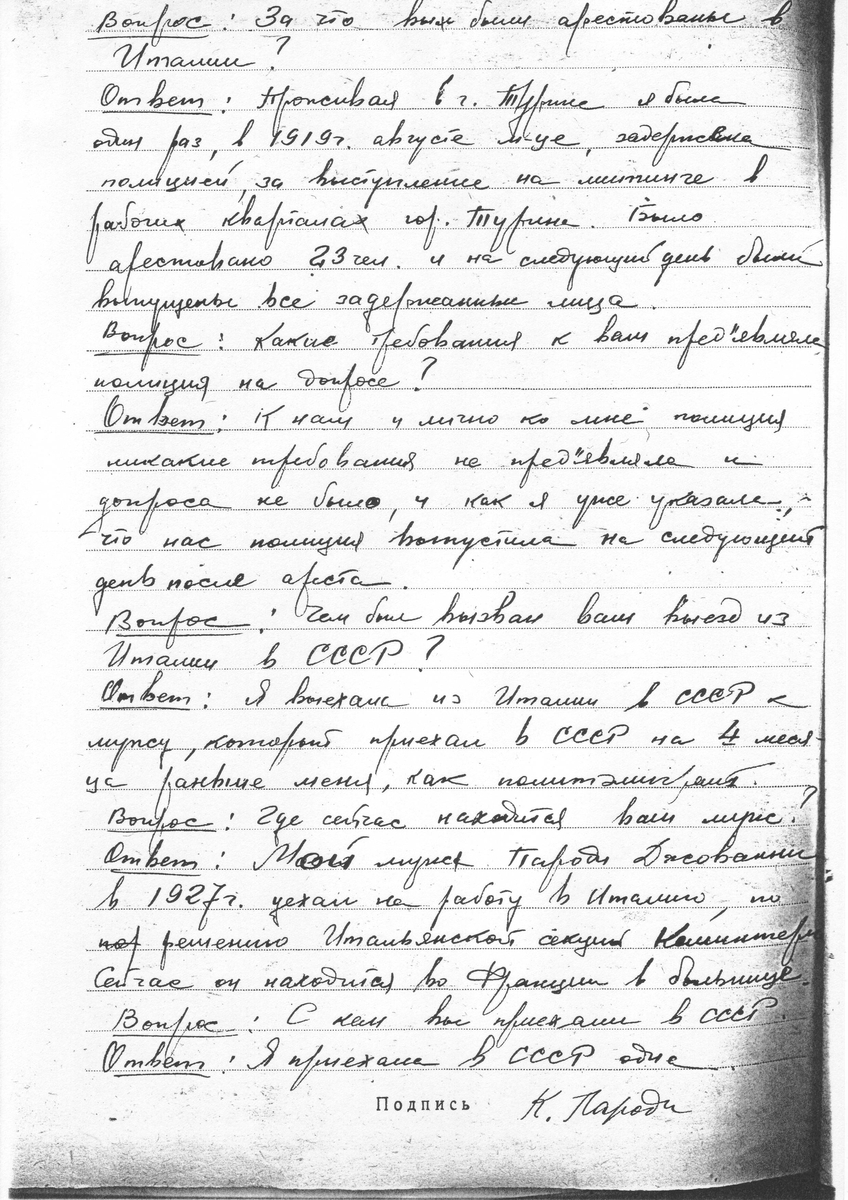 Вопрос: За что вы были арестованы в
Италии?
Ответ: Проживая в г. Турине я была
один раз, в 1919г. августе м-це, задержана
полицией, за выступление на митинге в
рабочих кварталах гор. Турина. Было
арестовано 23 чел. и на следующий день были
выпущены все задержанные лица.
Вопрос: Какие требования к вам пред"являла
полиция на допросе?
Ответ: К нам и лично ко мне полиция
никакие требования не пред"являла и
допроса не было, и как я уже указала,
что нас полиция выпустила на следующий
день после ареста.
Вопрос: Чем был вызван ваш выезд из
Италии в СССР?
Ответ: Я выехала из Италии в СССР к
мужу, который приехал в СССР на 4 меся-
ца раньше меня, как политэмигрант.
Вопрос: Где сейчас находится ваш муж?
Ответ: Мой муж Пароди Джованни
в 1927г. уехал на работу в Италию, по
решению Итальянской секции Коминтерн
Сейчас он находится во Франции в больнице.
Вопрос: С кем вы приехали в СССР.
Ответ: Я приехала в СССР одна
Подпись К. Пароди